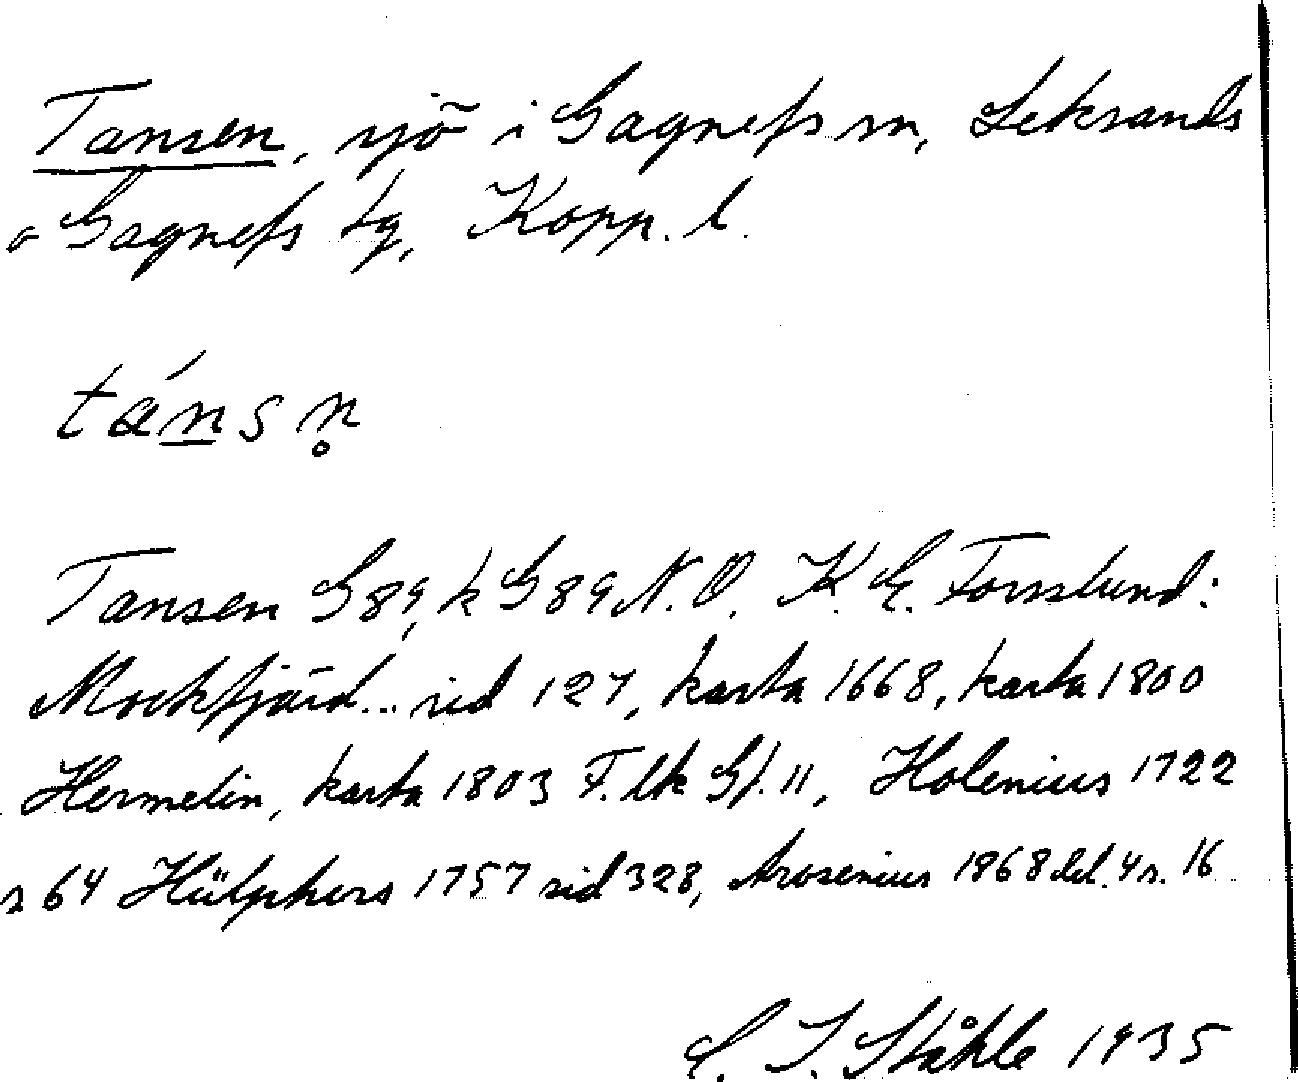 Tansen, sjö i Gagnefs sn, Leksands
o Gagnefs tg, Kopp. l.
tánsn̥
Tansen G89, k G89 N.O. K. E. Forsslund:
Mockfjärd... sid 127, karta 1668, karta 1800
Hermelin, karta 1803 F.lk Gf. 11, Holenius 1722
s 64 Hülphers 1757 sid 328, Arosenius 1868 del. 4 s. 16
C. I. Ståhle 1935